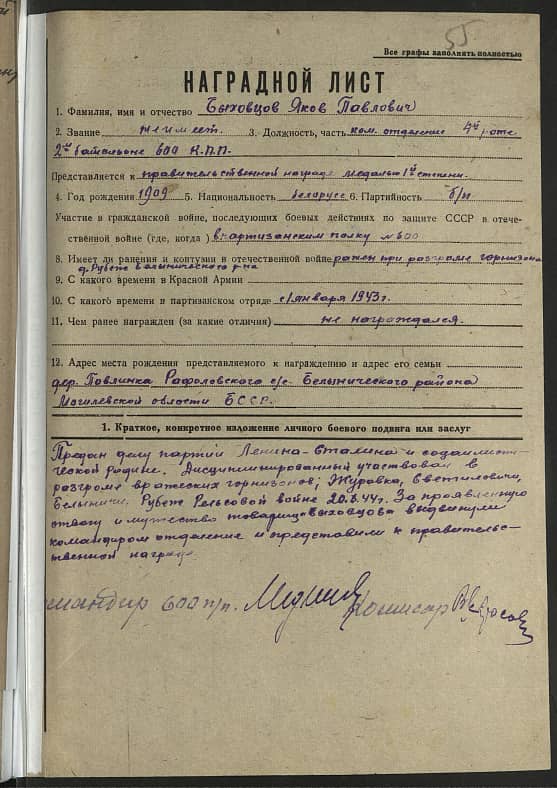 55
Все графы заполнять полностью
НАГРАДНОЙ ЛИСТ
1. Фамилия, имя и отчество Быховцов Яков Павлович
2. Звание не имеет. 3. Должность, часть ком. отделения 4й роте
2й батальоне 600 К.П.П.
Представляется к правительственной награде медалью 1й степени.
4. Год рождения 1909 5. Национальность беларусс 6. Партийность б/п
Участие в гражданской войне, последующих боевых действиях по защите СССР в отече-
ственной войне (где, когда) в партизанским полку № 600
8. Имеет ли ранения и контузии в отечественной войне ражен при разгроме горнизона
д. Рубеж Белыничического р-на
9. С какого времени в Красной Армии
10. С какого времени в партизанском отряде с января 1943 г.
11. Чем ранее награжден (за какие отличия) не награждался.
12. Адрес места рождения представляемого к награждению и адрес его семьи
дер. Павлинка Рафоловского с/с. Белынического района
Могилевской области БССР.
1. Краткое, конкретное изложение личного боевого подвига или заслуг
Предан делу партии Ленина-Сталина и социалисти-
ческой родине. Дисциплинированный участвовал в
разгроме вражеских горнизонов; Журавка, Светиловичи,
Белыничи, Рубеж Рельсовой войне 20.6.44г. За проявленную
отвагу и мужество товарища Быховцова выдвинули
командиром отделение и представили к правительс-
ственной награде
мандир 600 п/п. Комисар